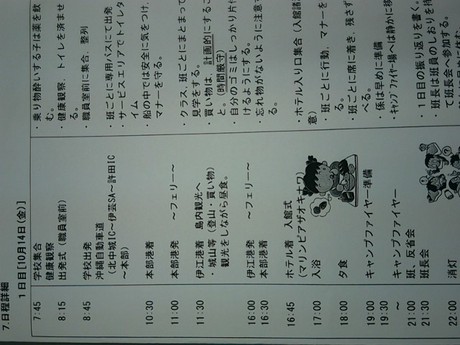 7.日程詳細
1日目[10月14日(金)]
7:45 学校集合 ・乗り物酔いする子は薬を飲
健康観察 む。
8:15 出発式(職員室前) ・健康観察、トイレを済ませ
る。
・職員室前に集合、整列
8:45 学校出発 ・班ごとに専用バスにて出発
沖縄自動車道 ・サービスエリアでトイレタ
(北中城IC～伊芸SA～許田IC イム
～本部) ・船の中では安全に気をつけ、
10:30 本部港着 マナーを守る。
11:00 本部港発 ～フェリー～
11:30 伊江港着 島内観光へ ・クラス、班ごとにまとまって
・城山等(登山・買い物) 見学をする。
観光をしながら昼食。 ・買い物は、計画的にするこ
と。(時間厳守)
16:00 伊江港発 ～フェリー～ ・自分のゴミはしっかり片付
16:30 本部港着 けるようにする。
・忘れ物がないように注意す
る。
16:45 ホテル着 入館式 ・ホテル入り口集合(入館請
(マリンピアザオキナワ) 意)
17:00 入浴 ・班ごとに行動、マナーを守
る。
18:00 夕食 ・班ごとに席に着き、残さず
べる。
19:00 キャンプファイヤー準備 ・係は早めに準備
19:30 キャンプファイヤー～ ・キャンプファイヤー場へは静かに移
21:00 班、反省会 ・1日目の振り返りを書く。
21:30 班長会 ・班長は班員のしおりを持
て班長会へ参加する。
22:00 消灯